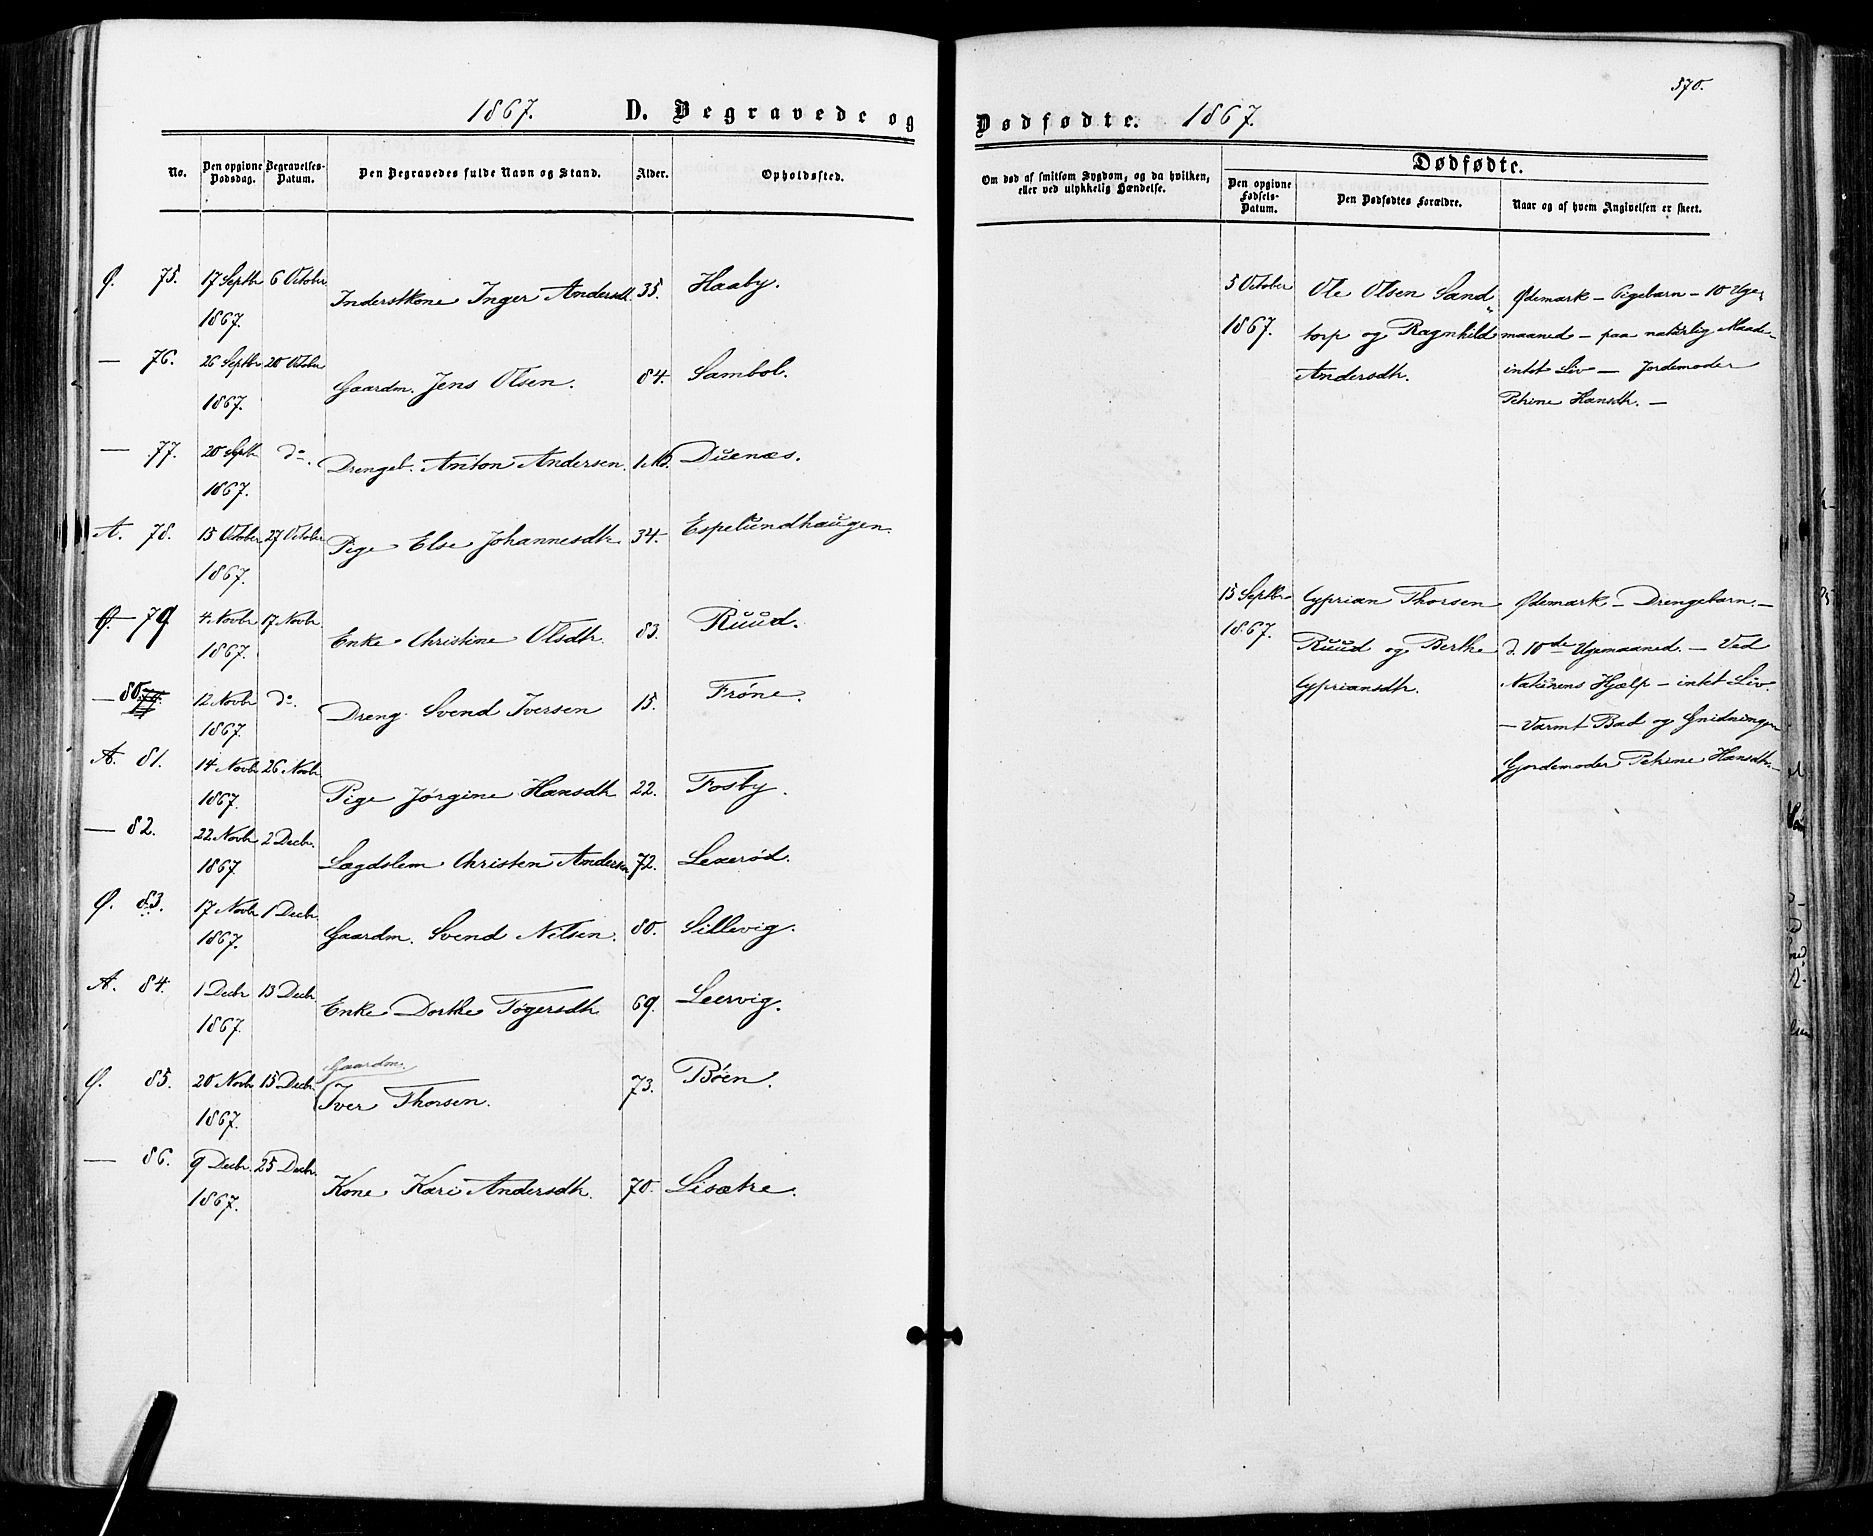 1867. D. Begravede og
No. Den opgivne Dødsdag. Begravelses-Datum. Den Begravedes fulde Navn og Stand. Alder. Opholdssted.
Ø. 75. 17 Septbr 6 October Inderstkone Inger Andersdt. 35. Haaby.
1867.
— 76. 26 Septbr 20 October Gaardm. Jens Olsen. 84. Sambol.
1867.
— 77. 20 Septbr do. Drengeb. Anton Andersen. 1 Md. Duenæs.
1867.
A. 78. 15 October 27 October Pige Else Johannesdtr. 34. Espelundhaugen.
1867.
Ø. 79 4. Novbr 17 Novbr Enke Christine Olsdtr. 83. Ruud.
1867.
— 80. 12 Novbr do. Dreng Svend Iversen 15. Frøne.
1867.
A. 81. 14 Novbr 26 Novbr Pige Jørgine Hansdtr 22. Fosby.
1867.
— 82. 22 Novbr 2 Decbr. Lægdslem Christen Andersen 72. Lexerød.
1867.
Ø. 83. 17 Novbr 1 Decbr. Gaardm. Svend Nilsen. 80. Sillevig.
1867.
A. 84. 1 Decbr 13 Decbr. Enke Dorthe Tøgersdtr 69. Leervig.
1867.
Gaardm.
Ø. 85. 20 Novbr 15 Decbr. Iver Thorsen. 73. Bøen.
1867.
— 86. 9 Decbr. 25 Decbr. Kone Kari Andersdtr. 70. Lisætre.
1867.
570.
Dødfødte. 1867.
Om død af smitsom Sygdom, og da hvilken, eller ved ulykkelig Hændelse.
Dødfødte.
Den opgivne Fødsels-Datum. Den Dødfødtes Forældre. Naar og af hvem Angivelsen er skeet.
5 October Ole Olsen Sand- Ødemark — Pigebarn — 10 Uge-
1867. torp og Ragnhild maaned — paa naturlig Maade
Andersdtr. intet Liv — Jordemoder
Petrine Hansdtr. —
15 Septbr Cyprian Thorsen Ødemark — Drengebarn. —
1867. Ruud og Berthe d. 10de Ugemaaned. — Ved
Cypriansdtr. Naturens Hjælp — intet Liv.
— Varmt Bad og Gnidninger
Gjordemoder Petrine Hansdtr. —